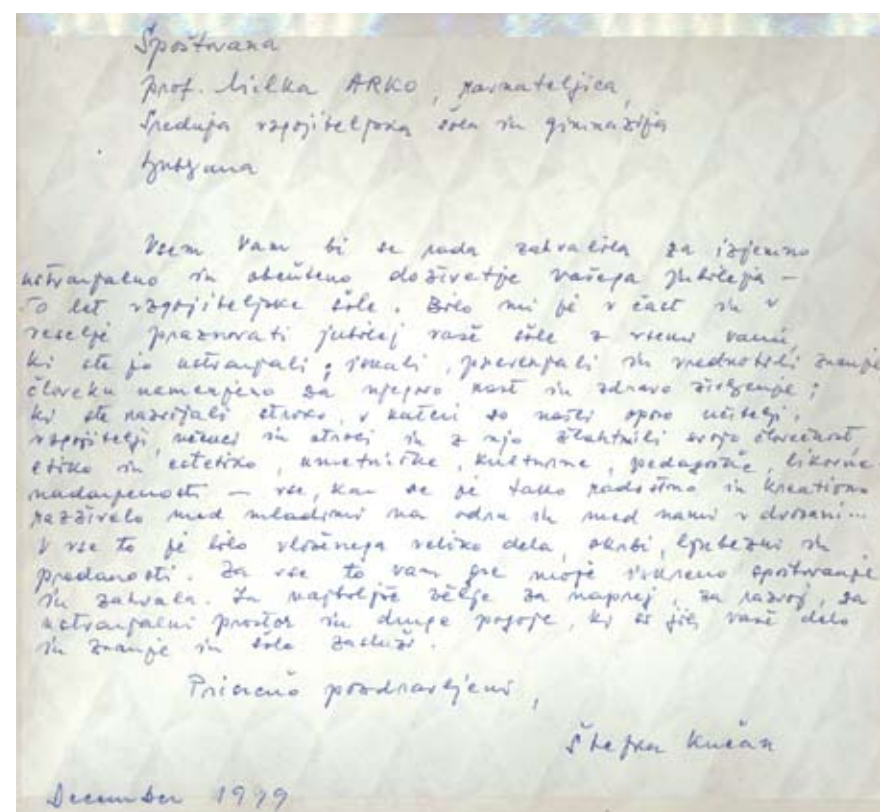 Spoštovana
prof. Milka ARKO, ravnateljica,
Srednja vzgojiteljska šola in gimnazija
Ljubljana
Vsem Vam bi se rada zahvalila za izjemno
ustvarjalno in občuteno doživetje vašega jubileja –
50 let vzgojiteljske šole. Bilo mi je v čast in v
veselje praznovati jubilej vaše šole z vsemi vami,
ki ste jo ustvarjali; iskali, preverjali in vrednotili znanje,
človeku namenjeno za njegovo rast in zdravo življenje;
ki ste razvijali stroko, v kateri so našli oporo učitelji,
vzgojitelji, učenci in otroci in z njo žlahtnili svojo človečnost,
etiko in estetiko, umetniške, kulturne, pedagoške, likovne
nadarjenosti – vse, kar se je tako radostno in kreativno
razživelo med mladimi na odru in med nami v dvorani...
V vse to je bilo vloženega veliko dela, skrbi, ljubezni in
predanosti. Za vse to vam gre moje iskreno spoštovanje
in zahvala. In najboljše želje za naprej, za razvoj, za
ustvarjalni prostor in druge pogoje, ki si jih vaše delo
in znanje in šola zasluži.
Prisrčno pozdravljeni,
Štefka Kučan
December 1999